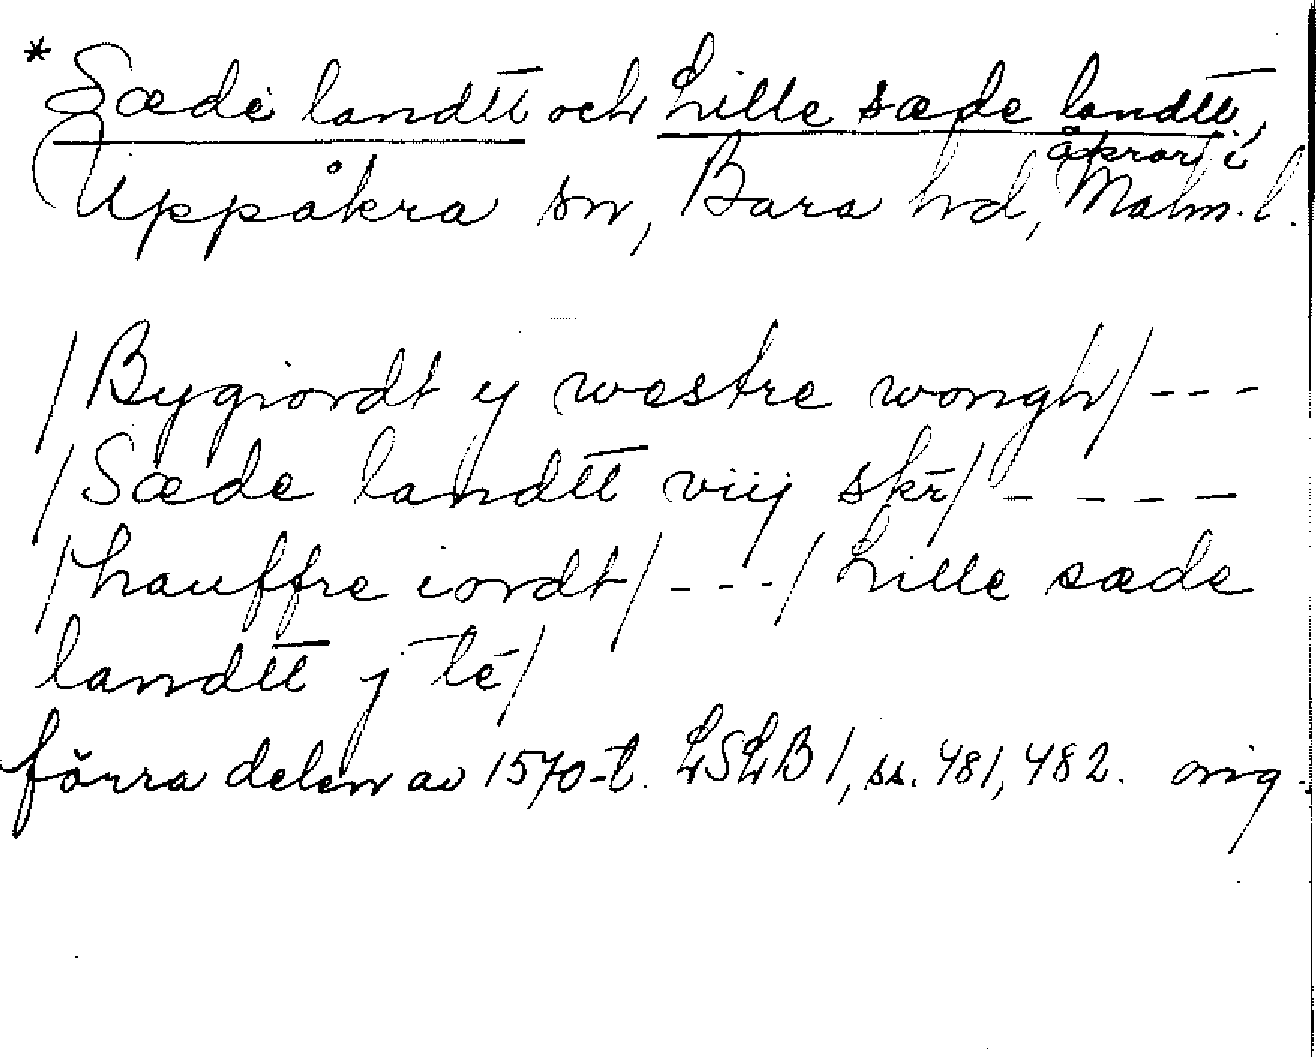 * Sæde landtt och Lille sæde landtt,
åkrar i
Uppåkra sn, Bara hd, Malm. l.
/Bygiordt y westre wongh/ ---
/Sæde landtt viij skr̄/ ----
/hauffre iordt/ ---/Lille sæde
landtt j té/
förra delen av 1570-t. LSLB 1, ss. 481, 482. orig.